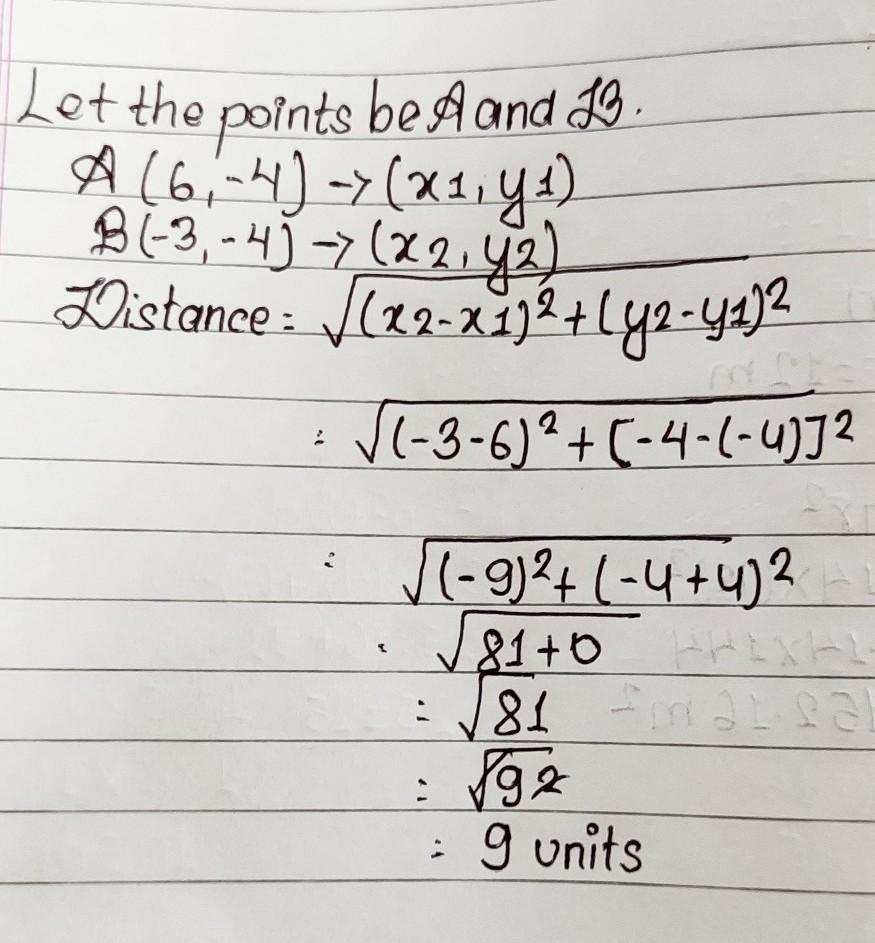 Let the points be A and B.
A (6,-4) -> (x1, y1)
B(-3,-4) -> (x2, y2)
Distance = √(x2-x1)²+(y2-y1)²
= √(-3-6)²+[-4-(-4)]²
= √(-9)²+(-4+4)²
= √81+0
= √81
= √9²
= 9 units